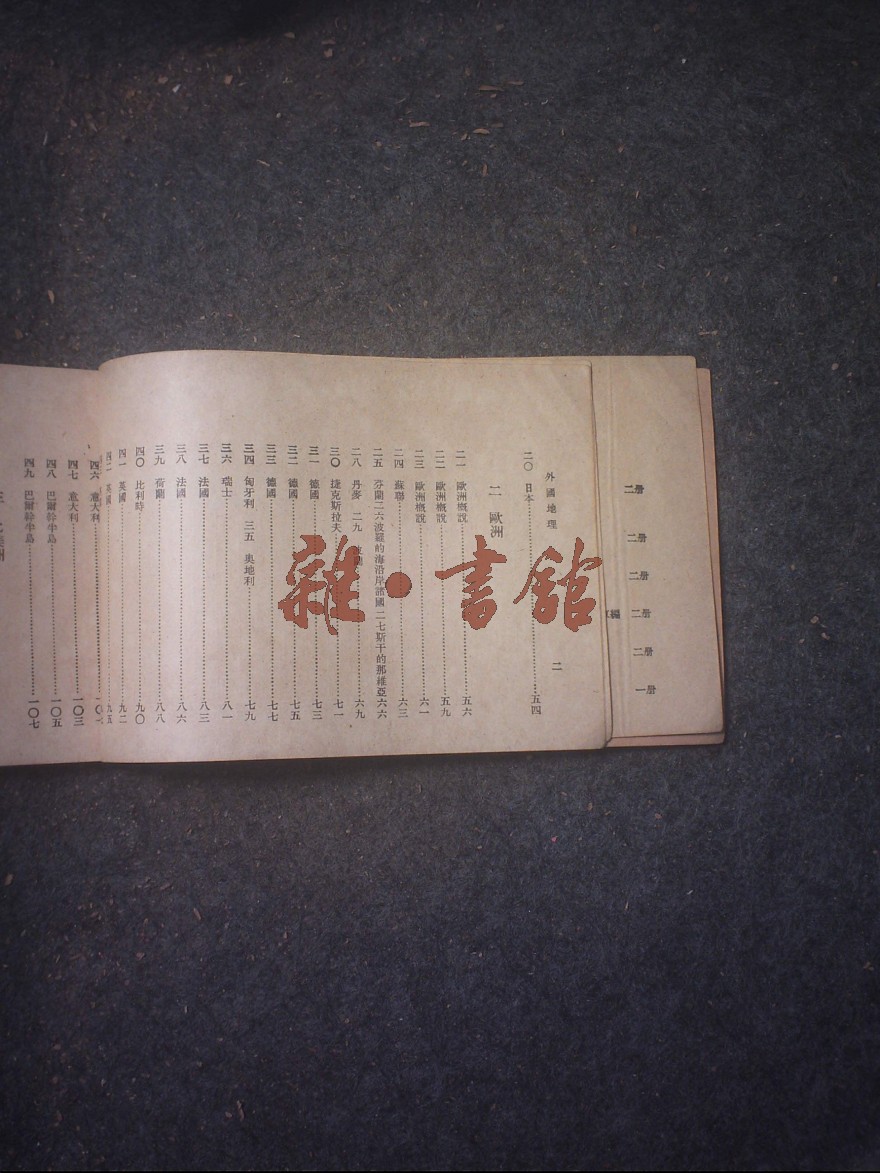 二册
二册
二册
二册
二册
一册
外國地理
二
二〇 日本 五四
二 歐洲
二一 歐洲概說 五六
二二 歐洲概說 五九
二三 歐洲概說 六一
二四 蘇聯 六三
二五 芬蘭二六波羅的海沿岸諸國二七斯干的那維亞 六六
二八 丹麥 二九 六九
三〇 捷克斯拉夫 七一
三一 德國 七三
三二 德國 七五
三三 德國 七七
三四 匈牙利 三五 奧地利 七九
三六 瑞士 八一
三七 法國 八三
三八 法國 八六
三九 荷蘭 八八
四〇 比利時 九〇
四一 英國 九二
四二 英國 九五
四六 意大利
四七 意大利 一〇三
四八 巴爾幹半島 一〇五
四九 巴爾幹半島 一〇七
雜·書館